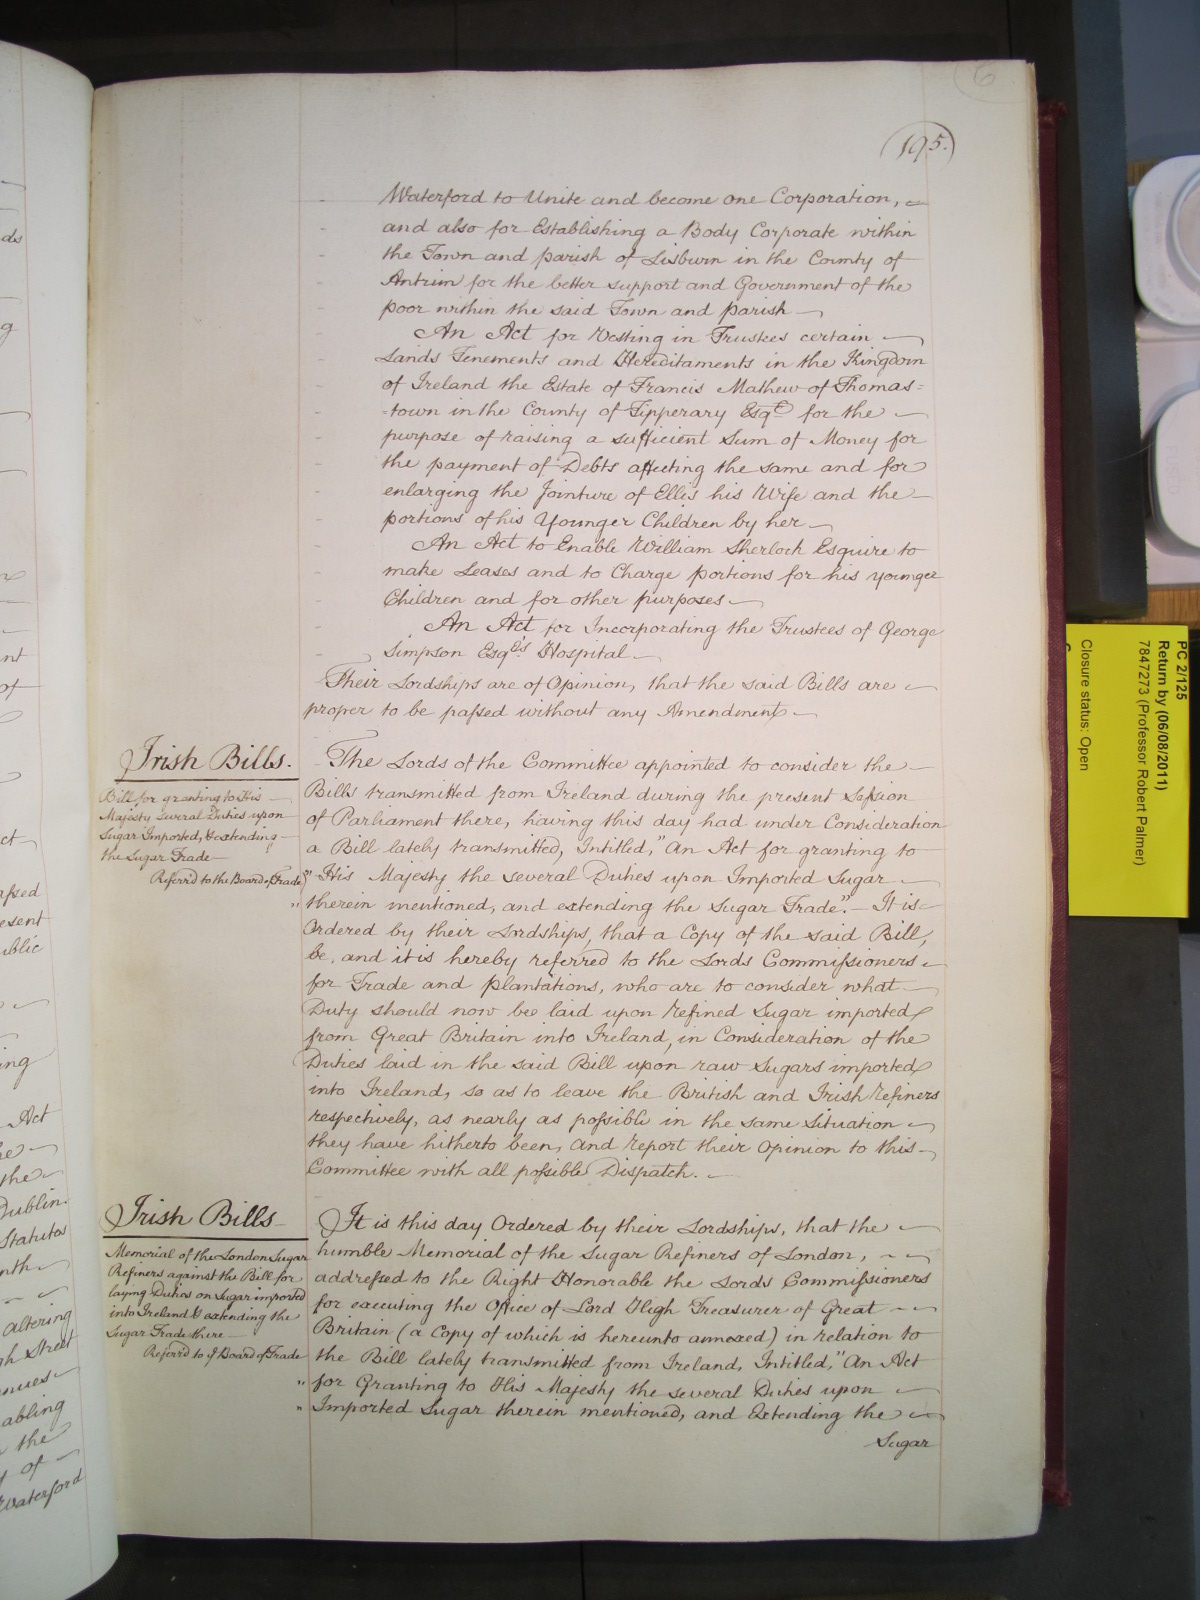 6
195.
Waterford to Unite and become one Corporation,
and also for Establishing a Body Corporate within
the Town and parish of Lisburn in the County of
Antrim for the better support and Government of the
poor within the said Town and parish
An Act for Vesting in Trustees certain
Lands Tenements and Hereditaments in the Kingdom
of Ireland the Estate of Francis Mathew of Thomas=
=town in the County of Tipperary Esqr. for the
purpose of raising a sufficient Sum of Money for
the payment of Debts affecting the same and for
enlarging the Jointure of Ellis his Wife and the
portions of his Younger Children by her
An Act to Enable William Sherlock Esquire to
make Leases and to Charge portions for his younger
Children and for other purposes
An Act for Incorporating the Trustees of George
Simpson Esqrs. Hospital
Their Lordships are of Opinion, that the said Bills are
proper to be passed without any Amendment
Irish Bills.
Bill for granting to His
Majesty several Duties upon
Sugar Imported, & extending
the Sugar Trade
Referr'd to the Board of Trade
The Lords of the Committee appointed to consider the
Bills transmitted from Ireland during the present Session
of Parliament there, having this day had under Consideration
a Bill lately transmitted, Intitled, "An Act for granting to
" His Majesty the several Duties upon Imported Sugar
" therein mentioned, and extending the Sugar Trade". It is
Ordered by their Lordships, that a Copy of the said Bill,
be, and it is hereby referred to the Lords Commissioners
for Trade and Plantations, who are to consider what
Duty should now be laid upon Refined Sugar imported
from Great Britain into Ireland, in Consideration of the
Duties laid in the said Bill upon raw Sugars imported
into Ireland, so as to leave the British and Irish Refiners
respectively, as nearly as possible in the same Situation
they have hitherto been, and report their Opinion to this
Committee with all possible Dispatch.
Irish Bills
Memorial of the London Sugar
Refiners against the Bill for
laying Duties on Sugar imported
into Ireland & extending the
Sugar Trade there
Referr'd to ye Board of Trade
It is this day Ordered by their Lordships, that the
humble Memorial of the Sugar Refiners of London,
addressed to the Right Honorable the Lords Commissioners
for executing the Office of Lord High Treasurer of Great
Britain (a Copy of which is hereunto annexed) in relation to
the Bill lately transmitted from Ireland, Intitled, "An Act
" for Granting to His Majesty the several Duties upon
" Imported Sugar therein mentioned, and Extending the
Sugar
PC 2/125
Return by (06/08/2011)
7847273 (Professor Robert Palmer)
Closure status: Open